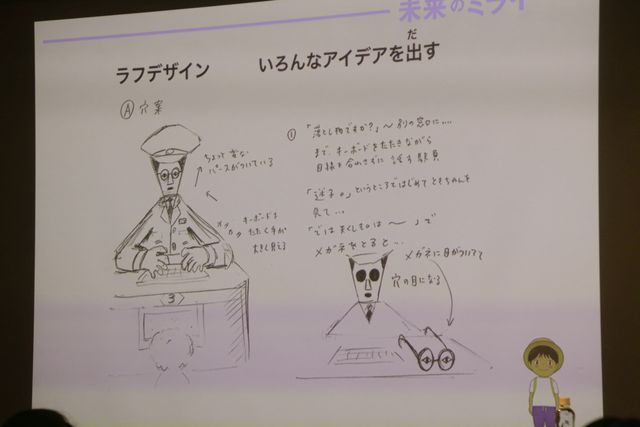 未来のミライ
ラフデザイン
いろんなアイデアを出す
だ
Ⓐ 穴案
ちょっと変な
パースがついている
キーボードは
たたく手が
大きく見える
①
「落とし物ですか?」〜別の窓口に….
まで、キーボードをたたきながら
目線を合わさずに話す駅員
「迷子。」というところではじめて
見て…
「では 〜 」で
メガネをとると…
メガネに目がついてて
穴の目になる
3